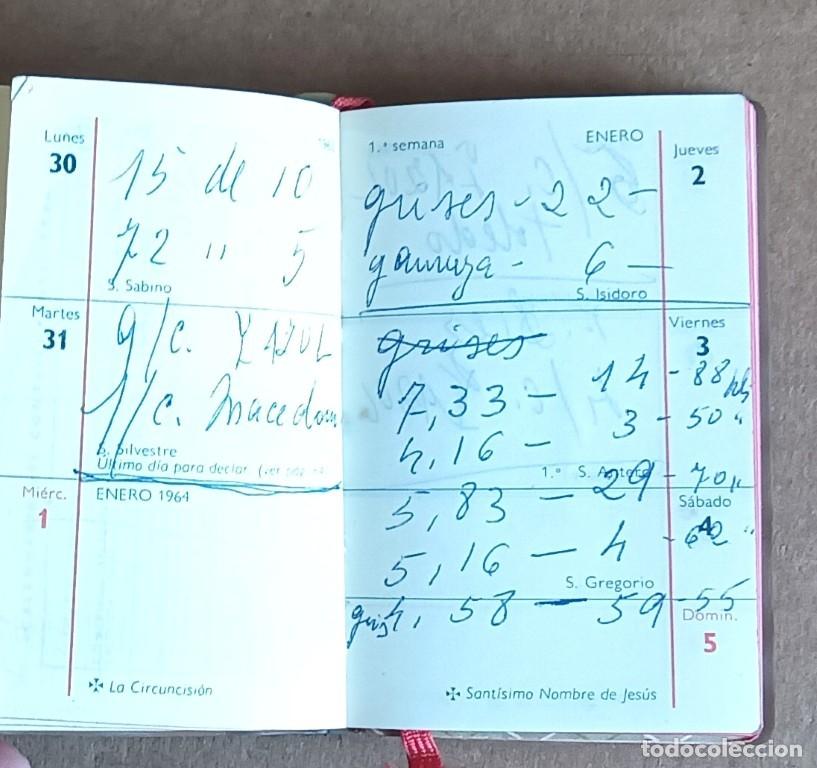 Lunes
30
15 de 10
72 " 5
S. Sabino
Martes
31
9/c. YAZUL
1/c. Macedonia
S. Silvestre
Último día para declar. (ver pág.
Miérc.
1
ENERO 1964
La Circuncisión
1.ª semana
ENERO
Jueves
2
grises - 2 2 -
gamuza - 6 -
S. Isidoro
Viernes
3
grises
7,33 - 14 - 88 pts
4,16 - 3 - 50 "
1.º S. Antero
5,83 - 29 - 70 "
Sábado
4
5,16 - 4 - 62 "
S. Gregorio
gris 4,58 - 59 - 55
Domin.
5
Santísimo Nombre de Jesús
todocoleccion